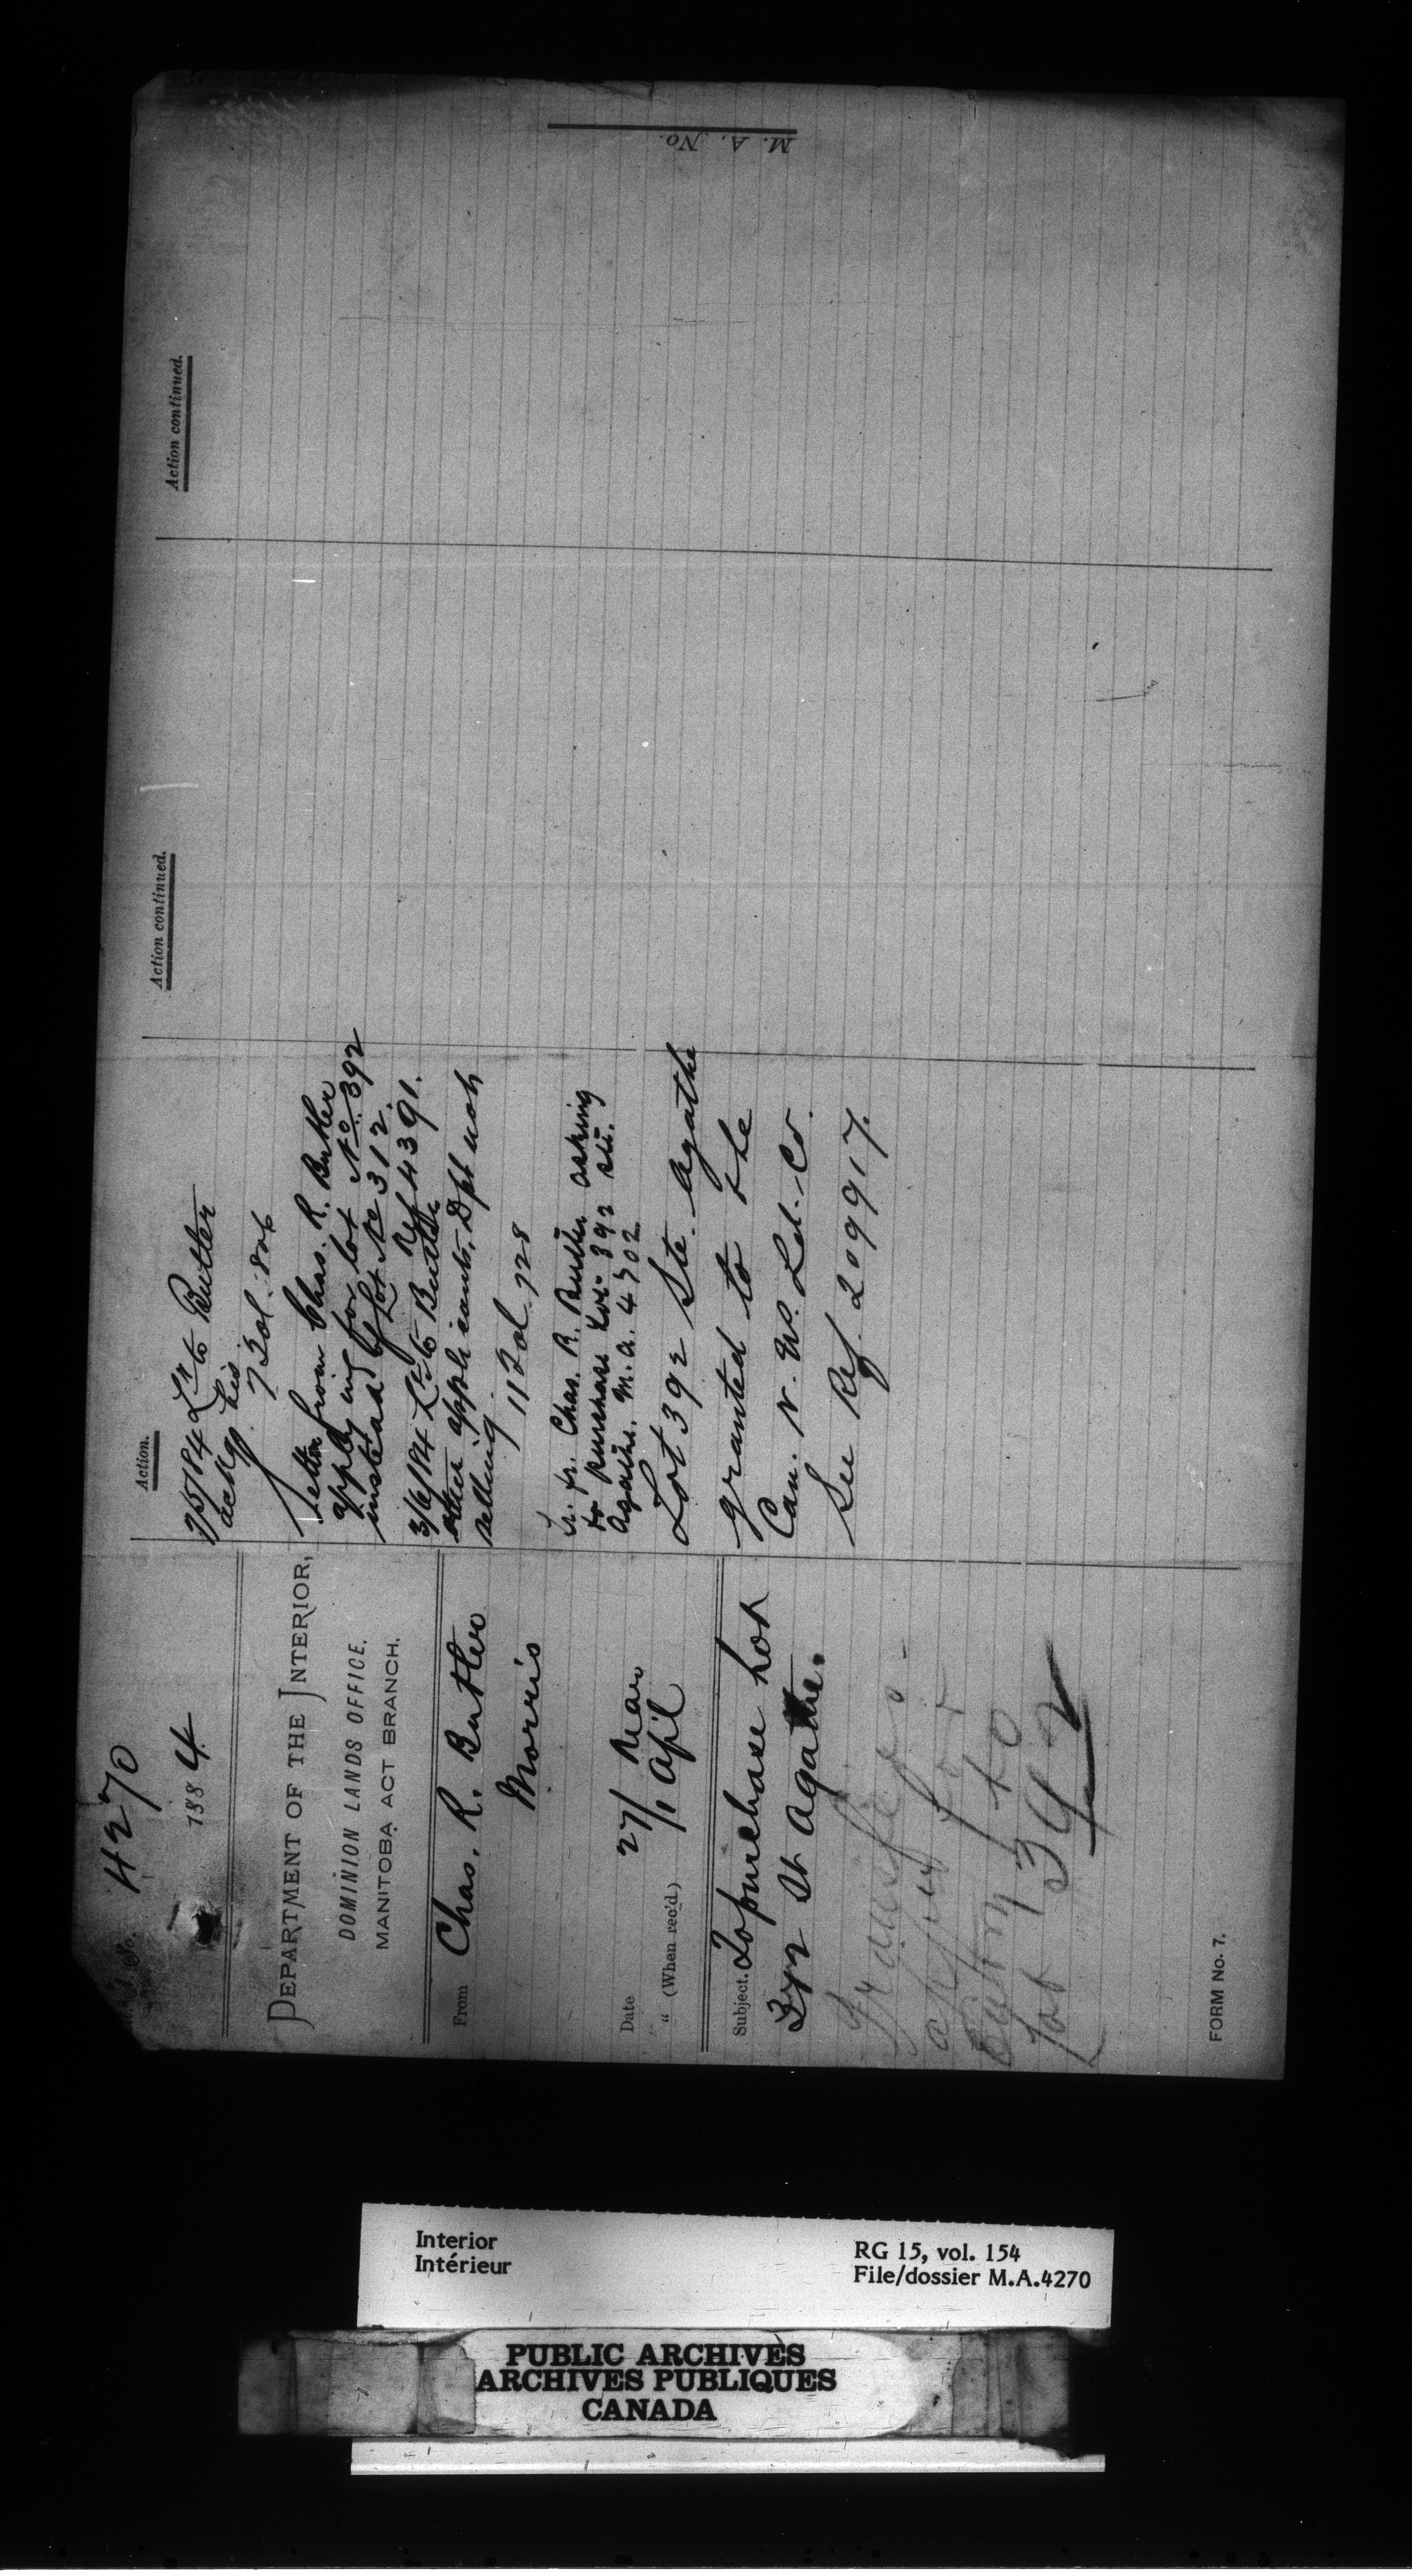 M. A. No.
4270
1884
DEPARTMENT OF THE INTERIOR,
DOMINION LANDS OFFICE.
MANITOBA ACT BRANCH.
From Chas. R. Butler
Morris
Date 27/ Mar
" (When rec'd.) 1/ Apl
Subject. To purchase Lot
372 St. Agathe.
for
Lot 392
FORM No. 7.
Action.
7/5/84 Lr to Butler
ackg his
7 Fol. 806
Letter from Chas. R. Butler
applying for lot No. 392
instead of Lot No 312.
Ref 4391.
3/6/84 Lr. to Butler
other applicants, Dpt not
selling 11 Fol. 728
Lr. fr. Chas. R. Butler asking
to purchase Lot 392 Ste.
Agathe. M.A. 4702
Lot 392 Ste. Agathe
granted to the
Can. N. W. Ld. Co.
See Ref. 209917.
Action continued.
Action continued.
Interior
Intérieur
RG 15, vol. 154
File/dossier M.A.4270
PUBLIC ARCHIVES
ARCHIVES PUBLIQUES
CANADA